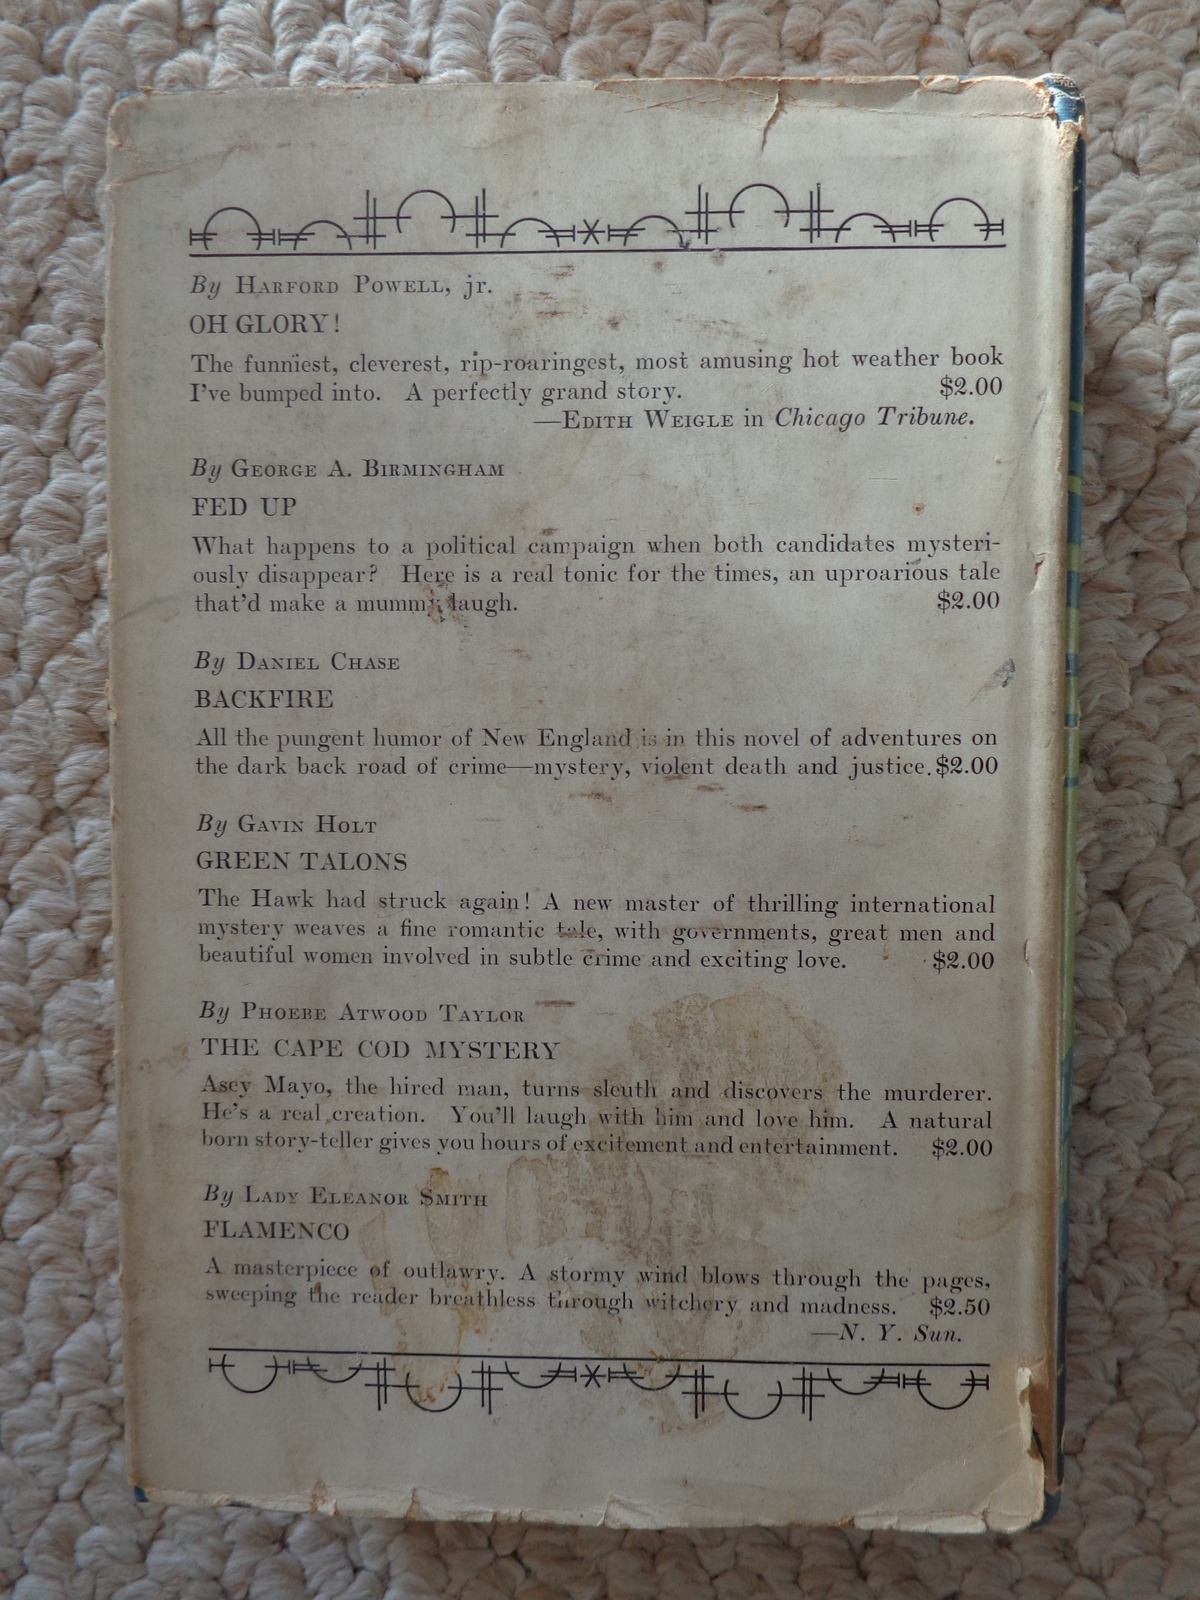 By HARFORD POWELL, jr.
OH GLORY!
The funniest, cleverest, rip-roaringest, most amusing hot weather book
I've bumped into. A perfectly grand story. $2.00
—EDITH WEIGLE in Chicago Tribune.
By GEORGE A. BIRMINGHAM
FED UP
What happens to a political campaign when both candidates mysteri-
ously disappear? Here is a real tonic for the times, an uproarious tale
that'd make a mummy laugh. $2.00
By DANIEL CHASE
BACKFIRE
All the pungent humor of New England is in this novel of adventures on
the dark back road of crime—mystery, violent death and justice. $2.00
By GAVIN HOLT
GREEN TALONS
The Hawk had struck again! A new master of thrilling international
mystery weaves a fine romantic tale, with governments, great men and
beautiful women involved in subtle crime and exciting love. $2.00
By PHOEBE ATWOOD TAYLOR
THE CAPE COD MYSTERY
Asey Mayo, the hired man, turns sleuth and discovers the murderer.
He's a real creation. You'll laugh with him and love him. A natural
born story-teller gives you hours of excitement and entertainment. $2.00
By LADY ELEANOR SMITH
FLAMENCO
A masterpiece of outlawry. A stormy wind blows through the pages,
sweeping the reader breathless through witchery and madness. $2.50
—N. Y. Sun.